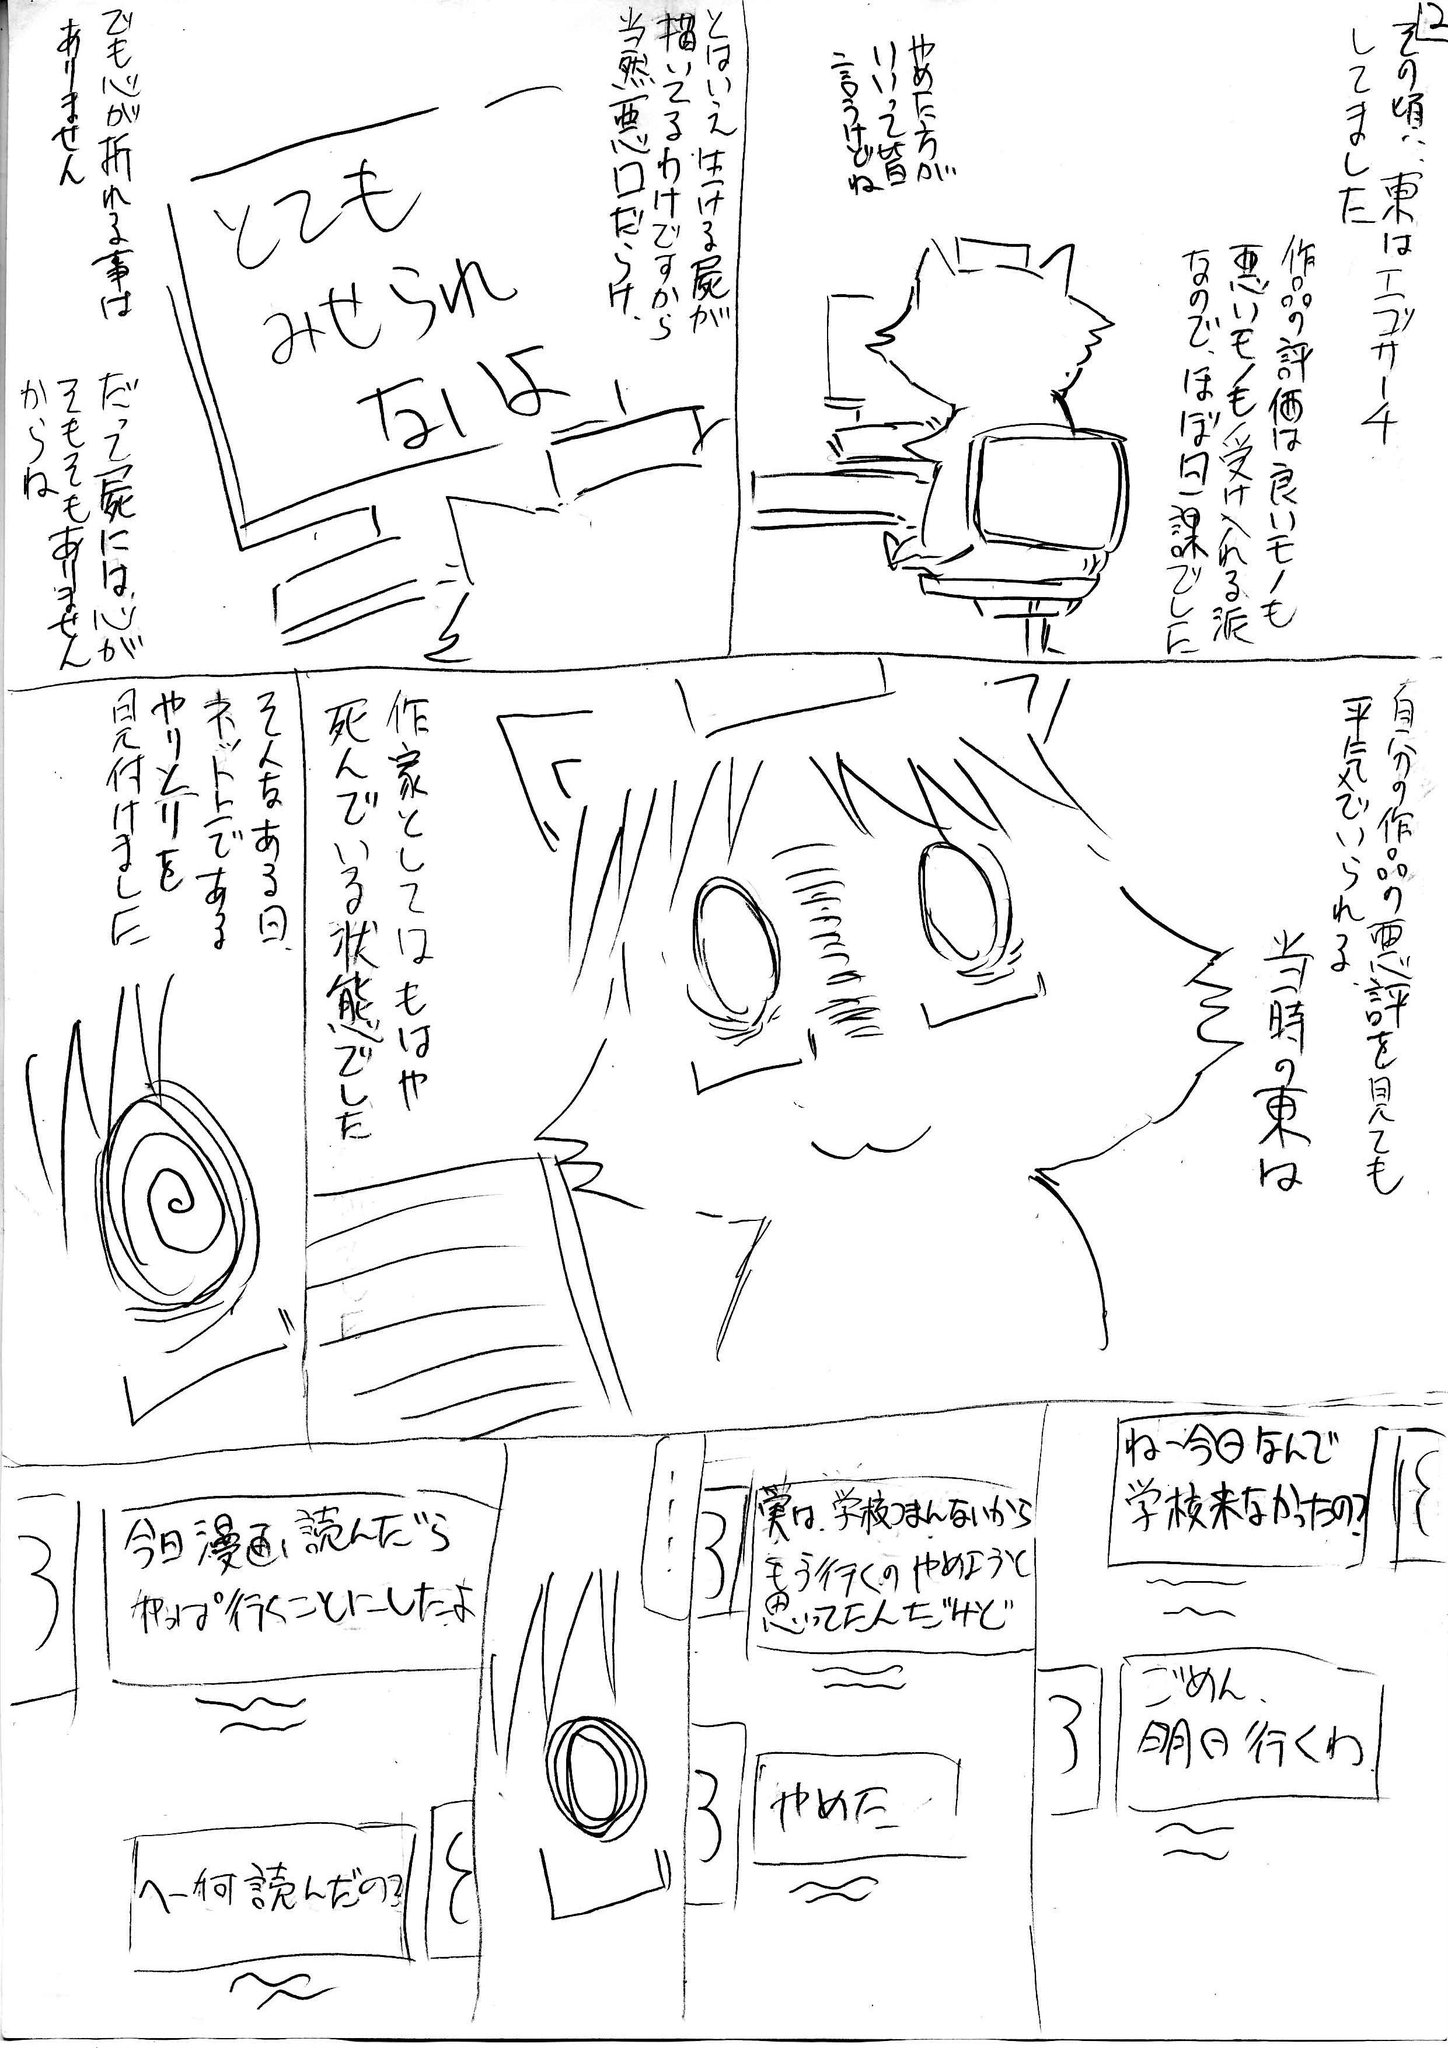 12
その頃、東はエゴサーチ
してました
作品の評価は良いモノも
悪いモノも受け入れる派
なので、ほぼ日課でした
やめた方が
いいって皆
言うけどね
とはいえ生ける屍が
描いてるわけですから
当然悪口だらけ、
とても
みせられ
ないよ
でも心が折れる事は
ありません
だって屍には、心が
そもそもありません
からね
自分の作品の悪評を見ても
平気でいられる、
当時の東は
作家としてはもはや
死んでいる状態でした
そんなある日、
ネット上である
やりとりを
見付けました
ねー今日なんで
学校来なかったの?
ごめん、
明日行くわ
実は、学校つまんないから
もう行くのやめようと
思ってたんだけど
やめた
今日漫画、読んだら
やっぱ行くことにしたよ
へー何読んだの?